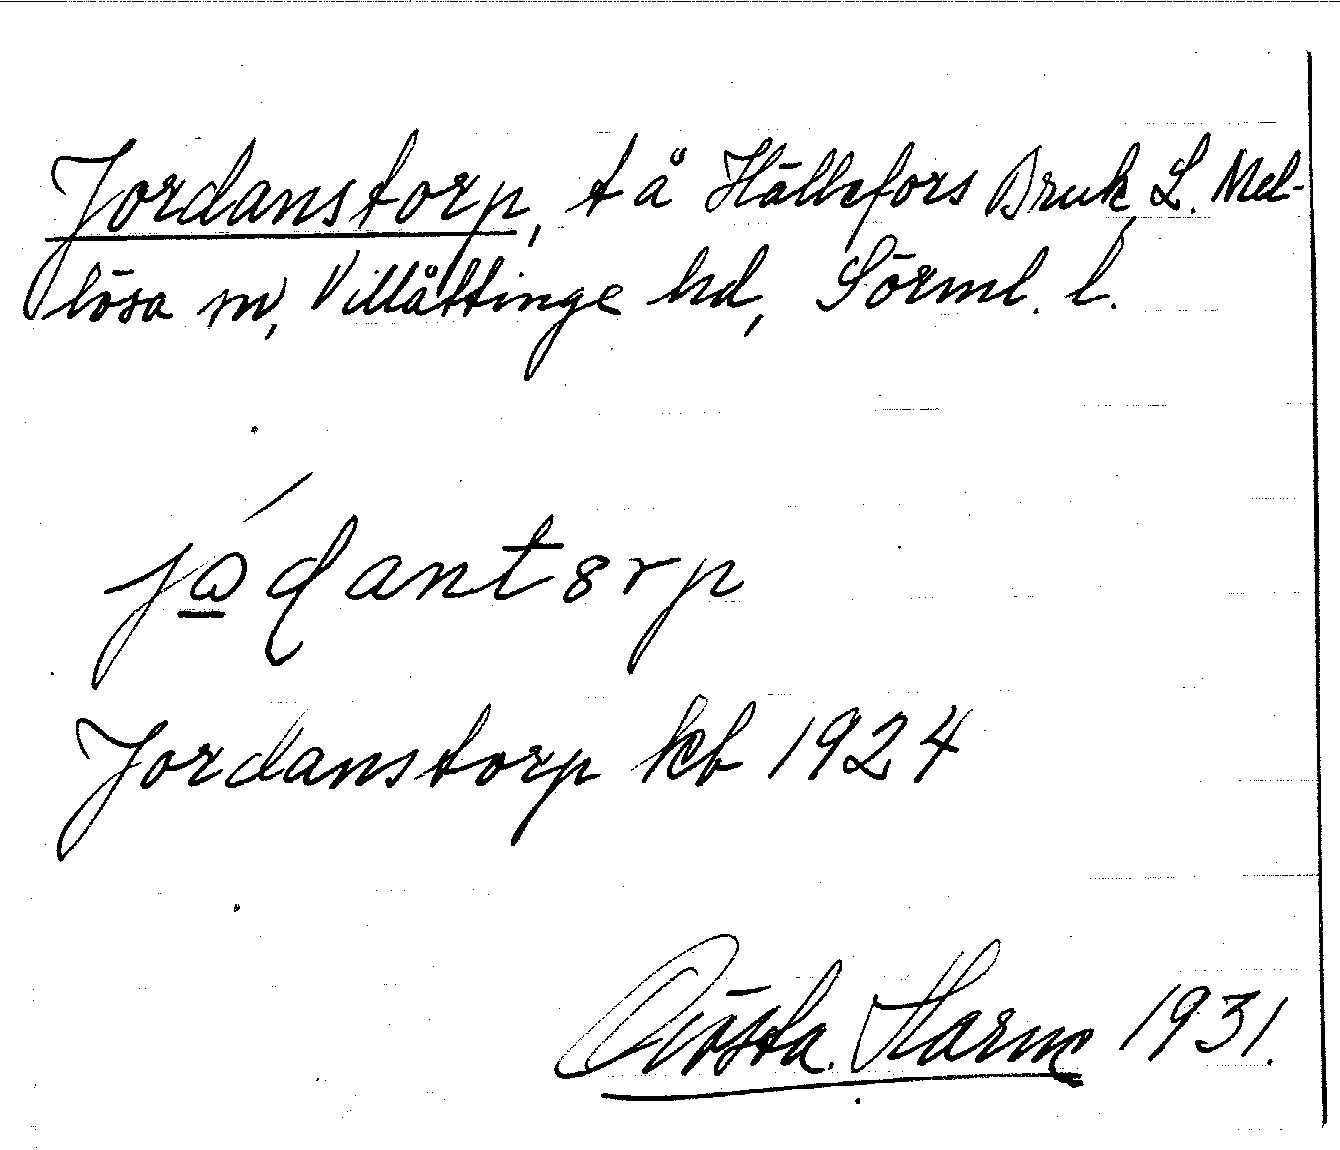 Jordanstorp, t å Hällefors Bruk, L. Mel-
lösa sn, Villåttinge hd, Sörml. l.
jɷɖantɞrp
Jordanstorp kb 1924
Gösta Harm 1931.